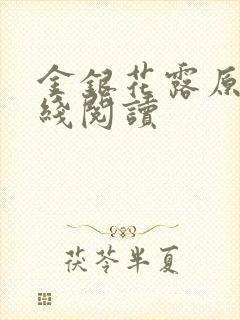 金銀花露原
綫閱讀
茯苓半夏